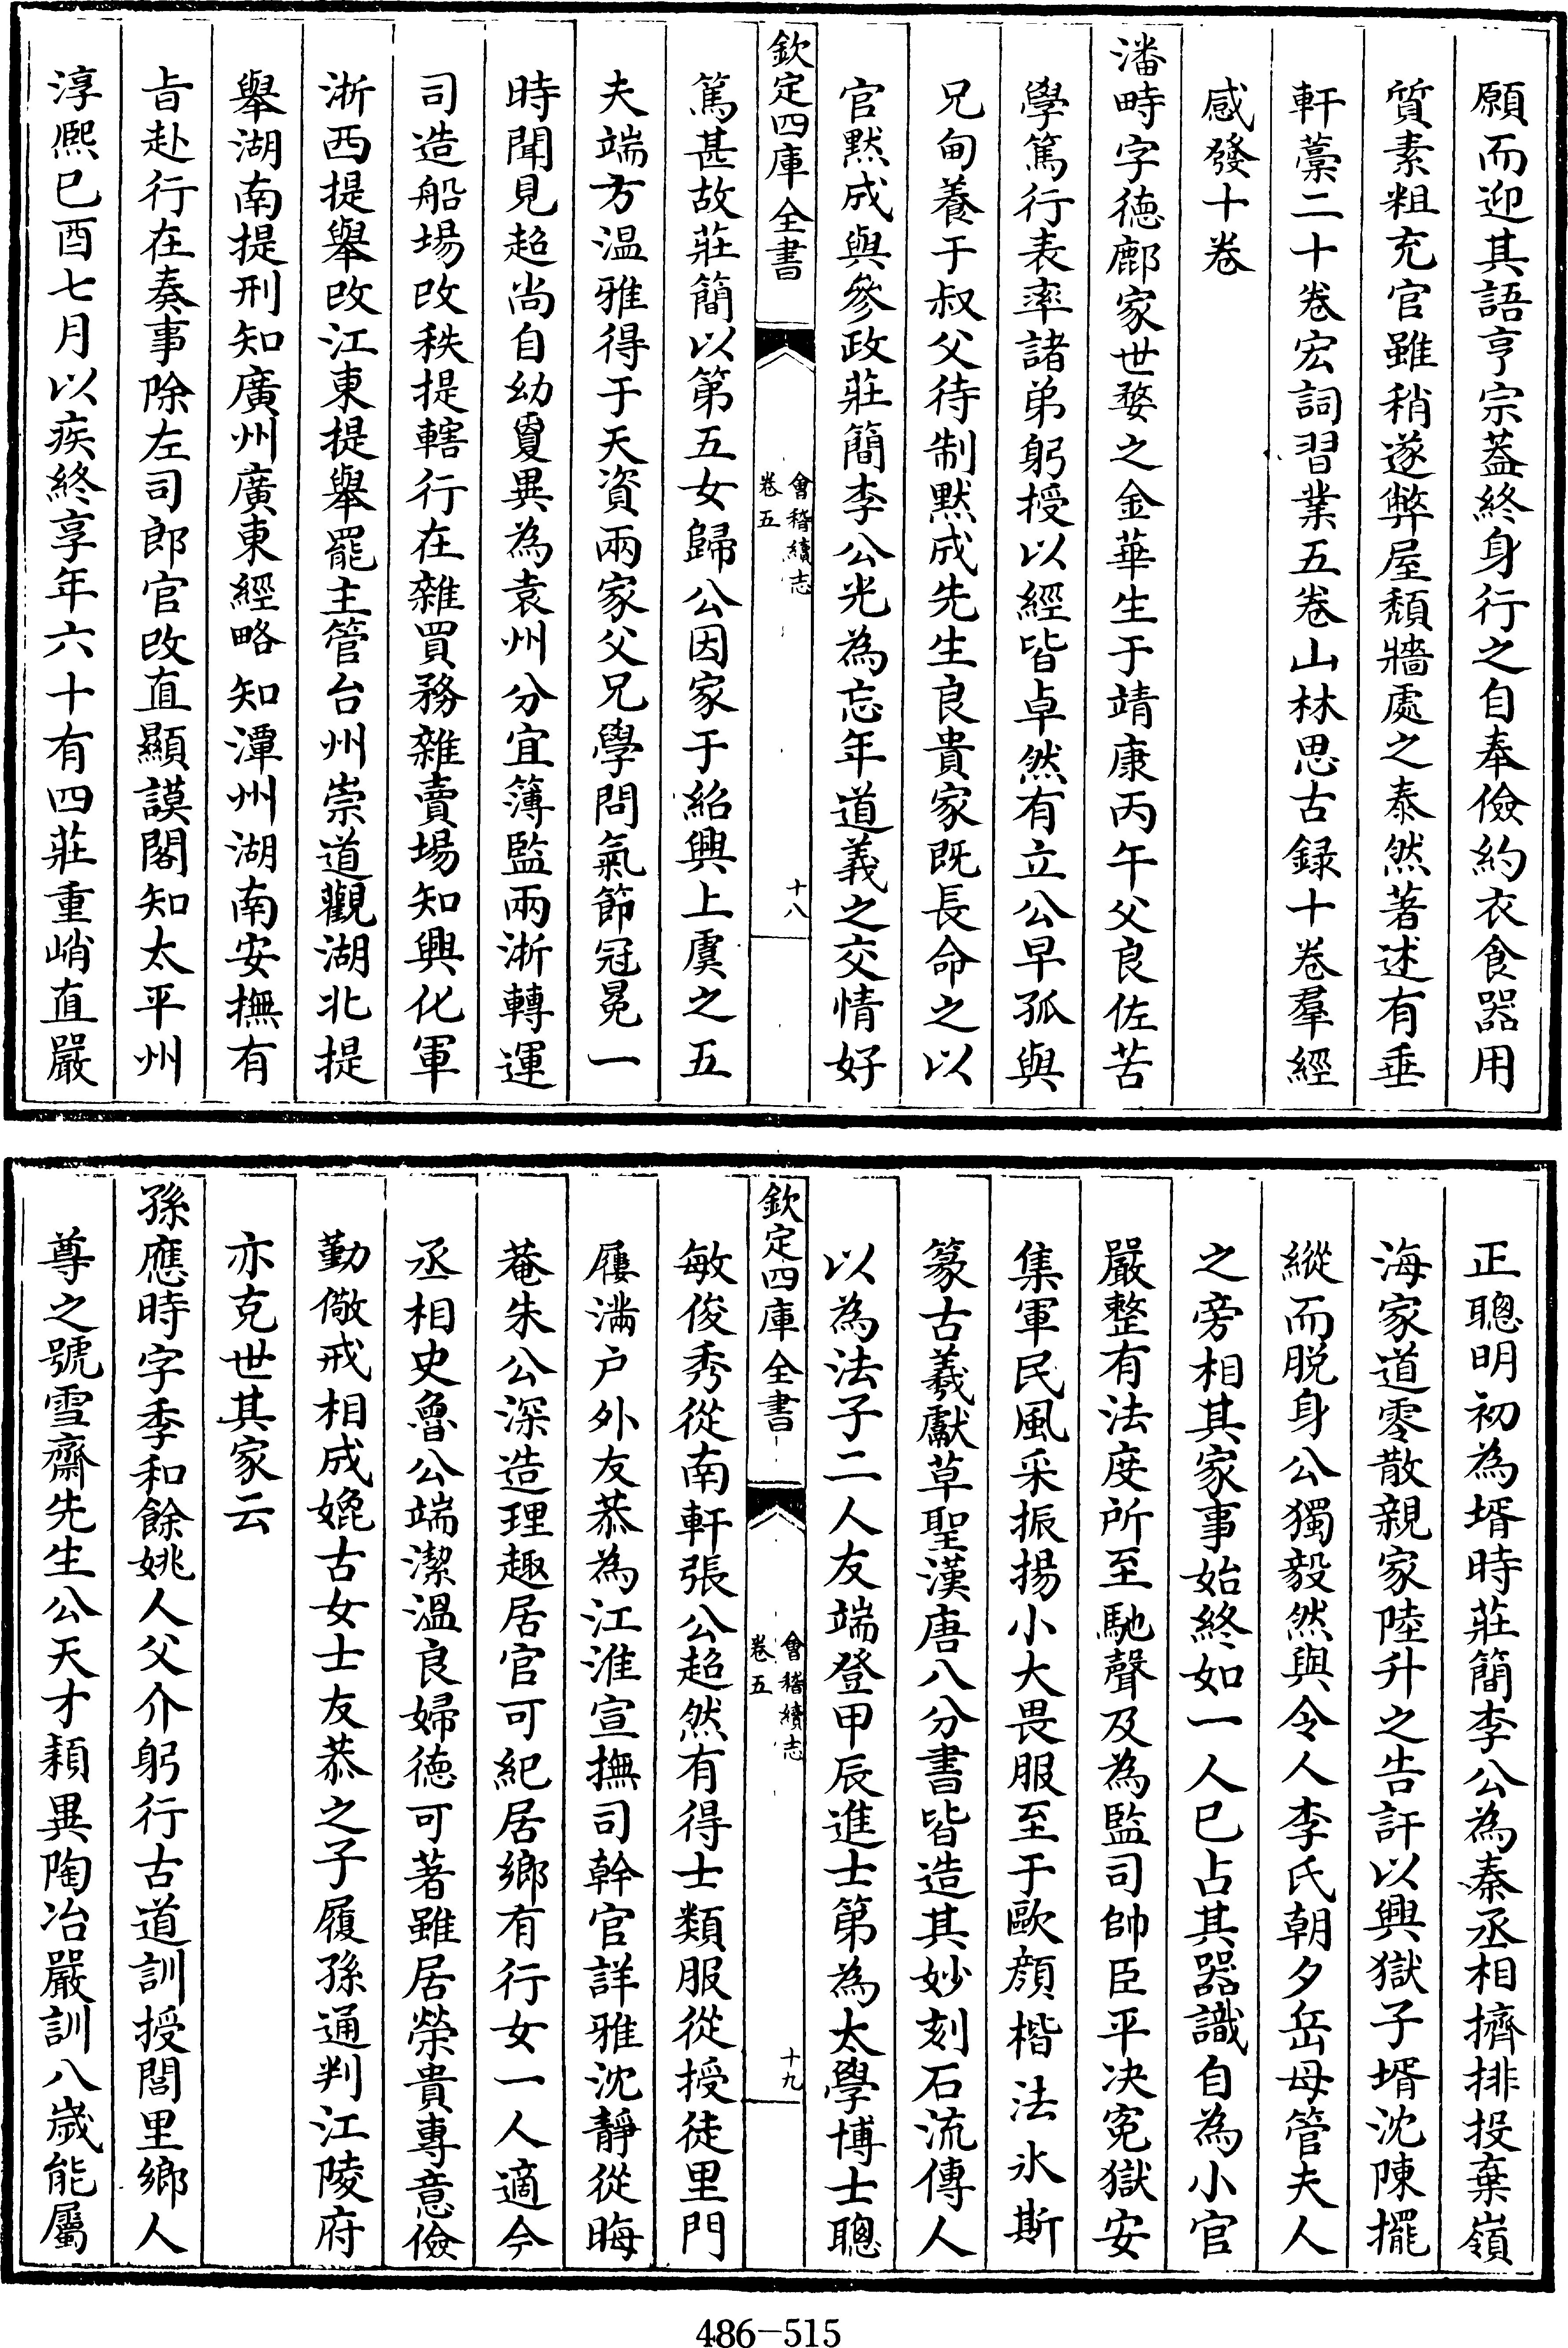 願而迎其語亨宗蓋終身行之自奉儉約衣食器用
質素粗充官雖稍遂弊屋頽牆處之泰然著述有垂
軒藁二十卷宏詞習業五卷山林思古録十卷羣經
感發十卷
潘畤字徳鄜家世婺之金華生于靖康丙午父良佐苦
學篤行表率諸弟躬授以經皆卓然有立公早孤與
兄甸養于叔父待制黙成先生良貴家既長命之以
官黙成與參政莊簡李公光為忘年道義之交情好
欽定四庫全書
會稽續志
卷五
十八
篤甚故莊簡以第五女歸公因家于紹興上虞之五
夫端方温雅得于天資兩家父兄學問氣節冠冕一
時聞見超尚自幼敻異為袁州分宜簿監兩浙轉運
司造船場改秩提轄行在雜買務雜賣場知興化軍
浙西提舉改江東提舉罷主管台州崇道觀湖北提
舉湖南提刑知廣州廣東經略知潭州湖南安撫有
旨赴行在奏事除左司郎官改直顯謨閣知太平州
淳熙己酉七月以疾終享年六十有四莊重峭直嚴
正聰明初為壻時莊簡李公為秦丞相擠排投棄嶺
海家道零散親家陸升之告訐以興獄子壻沈陳擺
縱而脱身公獨毅然與令人李氏朝夕岳母管夫人
之旁相其家事始終如一人已占其器識自為小官
嚴整有法度所至馳聲及為監司帥臣平決寃獄安
集軍民風采振揚小大畏服至于歐顔楷法氷斯
篆古羲獻草聖漢唐八分書皆造其妙刻石流傳人
以為法子二人友端登甲辰進士第為太學博士聰
欽定四庫全書
會稽續志
卷五
十九
敏俊秀從南軒張公超然有得士類服從授徒里門
屨滿户外友恭為江淮宣撫司幹官詳雅沈靜從晦
菴朱公深造理趣居官可紀居鄉有行女一人適今
丞相史魯公端潔溫良婦徳可著雖居榮貴專意儉
勤儆戒相成媲古女士友恭之子履孫通判江陵府
亦克世其家云
孫應時字季和餘姚人父介躬行古道訓授閭里鄉人
尊之號雪齋先生公天才穎異陶冶嚴訓八歲能屬
486-515